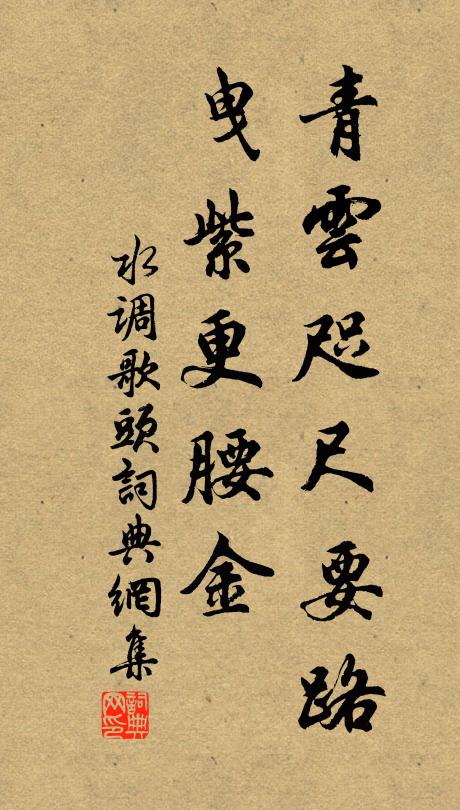 青雲咫尺要路
曳紫更腰金
水调歌頭詞典網集
詞典
网印